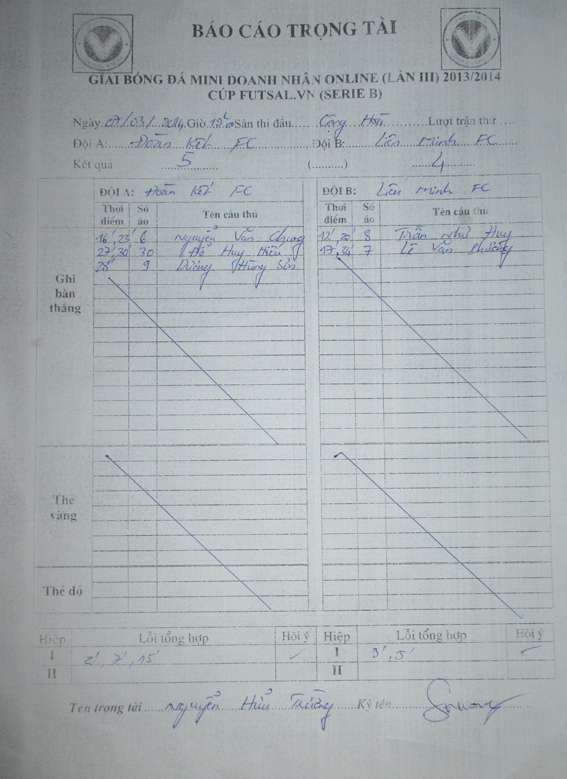 BÁO CÁO TRỌNG TÀI
GIẢI BÓNG ĐÁ MINI DOANH NHÂN ONLINE (LẦN III) 2013/2014
CÚP FUTSAL.VN (SERIE B)
Ngày 07/03/2014 Giờ Sân thi đấu Cộng Hòa Lượt trận thứ
Đội A: Đoàn Kết FC Đội B: Liên Minh FC
Kết quả 5 (..........) 4
ĐỘI A: Đoàn Kết FC ĐỘI B: Liên Minh FC
Thời điểm Số áo Tên cầu thủ Thời điểm Số áo Tên cầu thủ
16', 23' 6 Nguyễn Văn Chung 12', 20' 8 Trần Như Huy
27', 30' 30 Đỗ Huy Hiếu 17', 34' 7 Lê Văn Phường
28' 9 Dương Hùng Sơn
Ghi bàn thắng
Thẻ vàng
Thẻ đỏ
Hiệp Lỗi tổng hợp Hội ý Hiệp Lỗi tổng hợp Hội ý
I 2', 7', 15' I 3', 5'
II II
Tên trọng tài Nguyễn Hữu Trường Ký tên